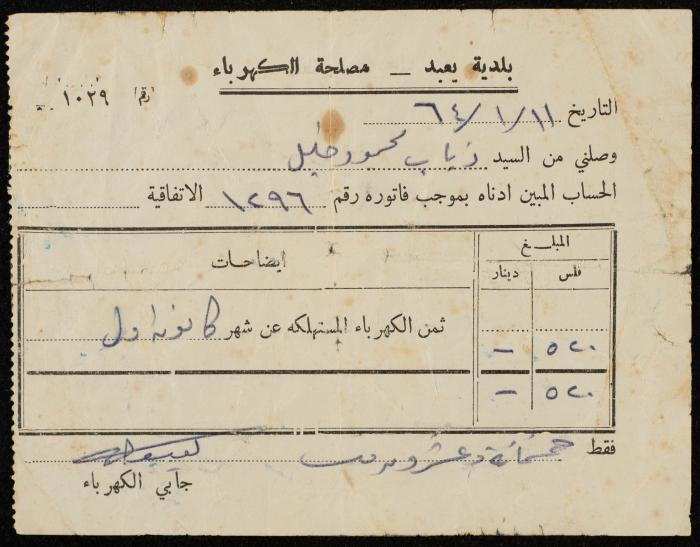 بلدية يعبد ــ مصلحة الكهرباء
رقم ١٠٢٩
التاريخ ٦٤/١/١١
وصلني من السيد ذياب محمود خليل
الحساب المبين ادناه بموجب فاتوره رقم ١٢٩٦ الاتفاقية
المبلغ
فلس دينار ايضاحات
ثمن الكهرباء المستهلكه عن شهر كانون اول
٥٢٠ —
٥٢٠ —
فقط خمسمائة وعشرون فلس
جابي الكهرباء